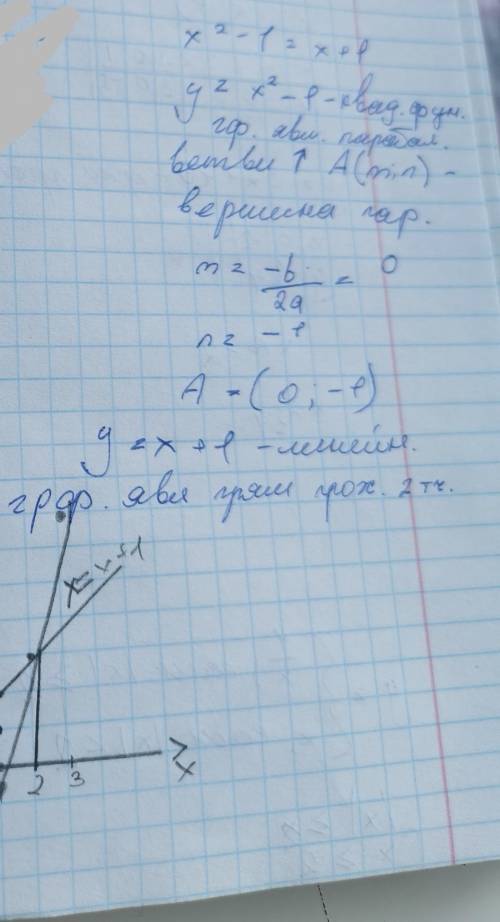 x² - 1 = x + 1
y = x² - 1 - квад. фун.
гр. явл. парабол.
ветви ↑ A(m;n) -
вершина пар.
m = -b/2a = 0
n = -1
A = (0; -1)
y = x + 1 - линейн.
граф. явл прям прох. 2 тч.
x = x + 1
2 3 x